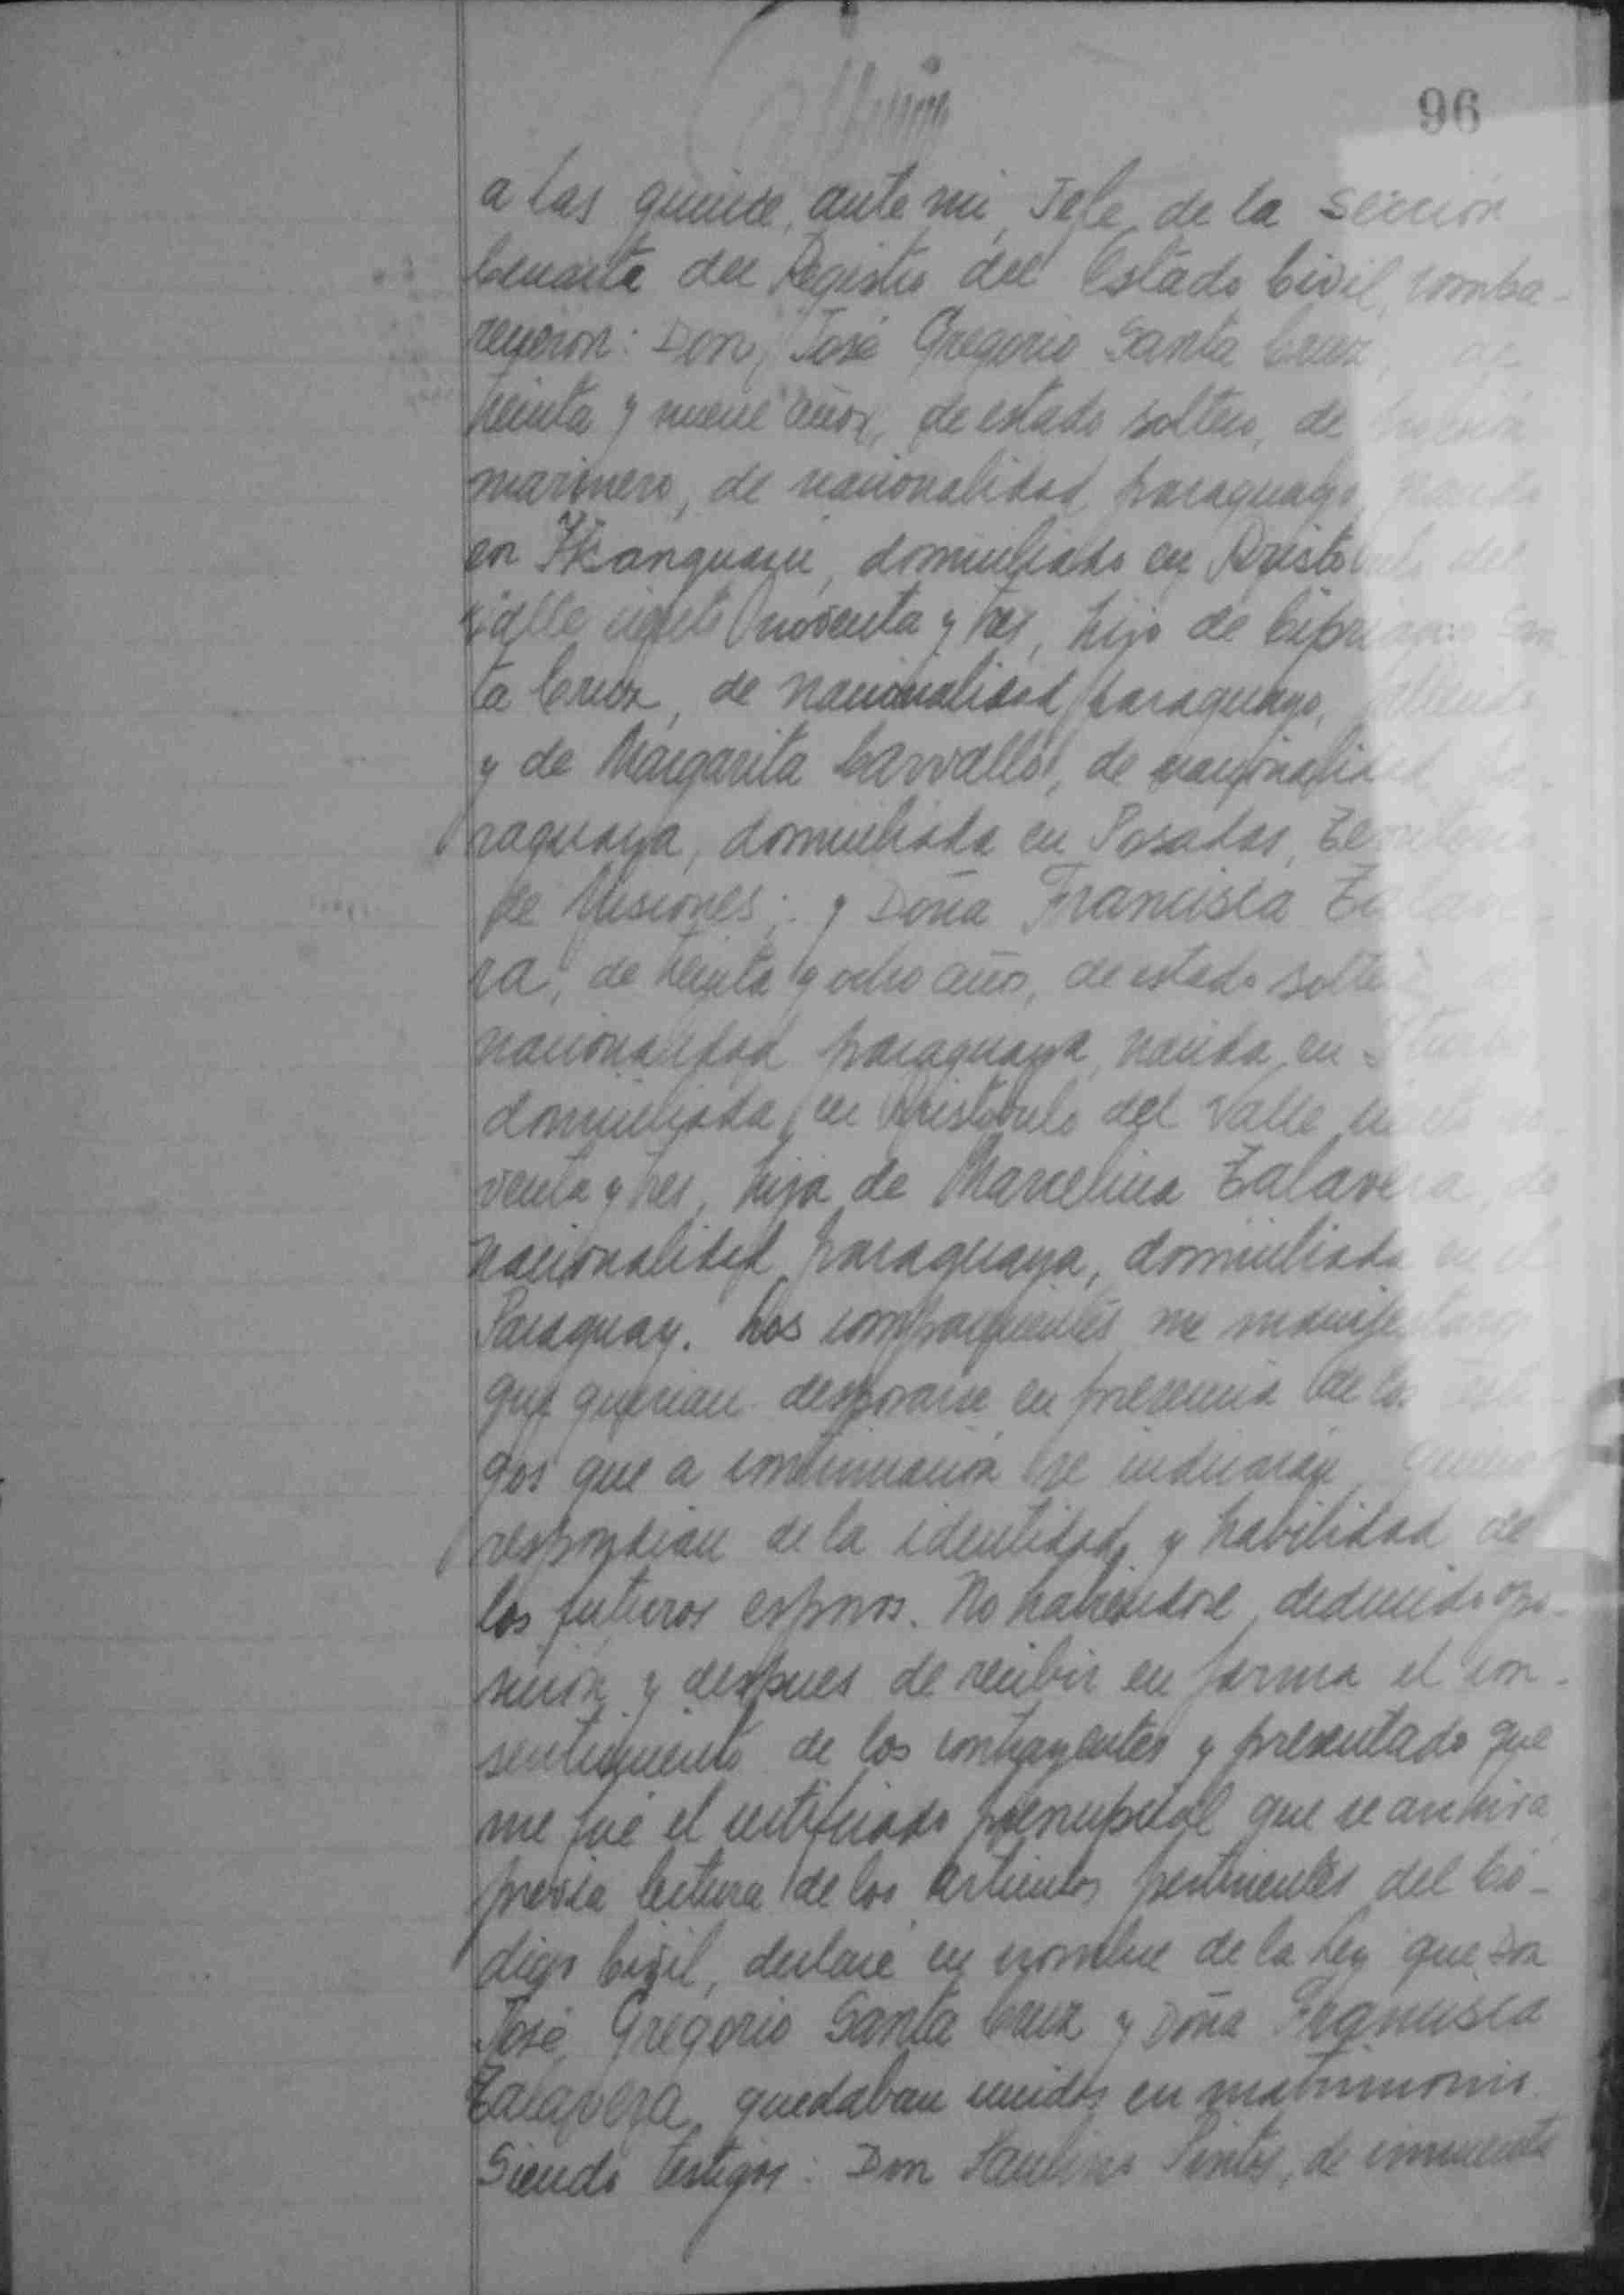 96
a las quince, ante mi, Jefe de la Sección
Cuarta del Registro del Estado Civil, compa-
recieron: Don José Gregorio Santa Cruz, de
treinta y nueve años, de estado soltero, de profesión
marinero, de nacionalidad paraguayo, nacido
en domiciliado en Aristóbulo del
Valle ciento noventa y tres, hijo de Cipriano San
ta Cruz, de nacionalidad paraguayo, fallecido
y de Margarita Carvallo, de nacionalidad pa-
raguaya, domiciliada en Posadas, Territorio
de Misiones; y Doña Francisca Talave-
ra, de treinta y ocho años, de estado soltera, de
nacionalidad paraguaya, nacida en
domiciliada en Aristóbulo del Valle ciento no-
venta y tres, hija de Marcelina Talavera, de
nacionalidad paraguaya, domiciliada en el
Paraguay. Los comparecientes me manifestaron
que querian desposarse en presencia de los testi-
gos que a continuación se indicarán, quienes
respondian de la identidad y habilidad de
los futuros esposos. No habiendose deducido opo-
sición y despues de recibir en forma el con-
sentimiento de los contrayentes y presentado que
me fué el certificado prenupcial que se archiva
previa lectura de los articulos pertinentes del Có-
digo Civil, declaré en nombre de la Ley que Don
José Gregorio Santa Cruz y Doña Francisca
Talavera, quedaban unidos en matrimonio.
Siendo testigos: Don Paulino Pintos, de cincuenta